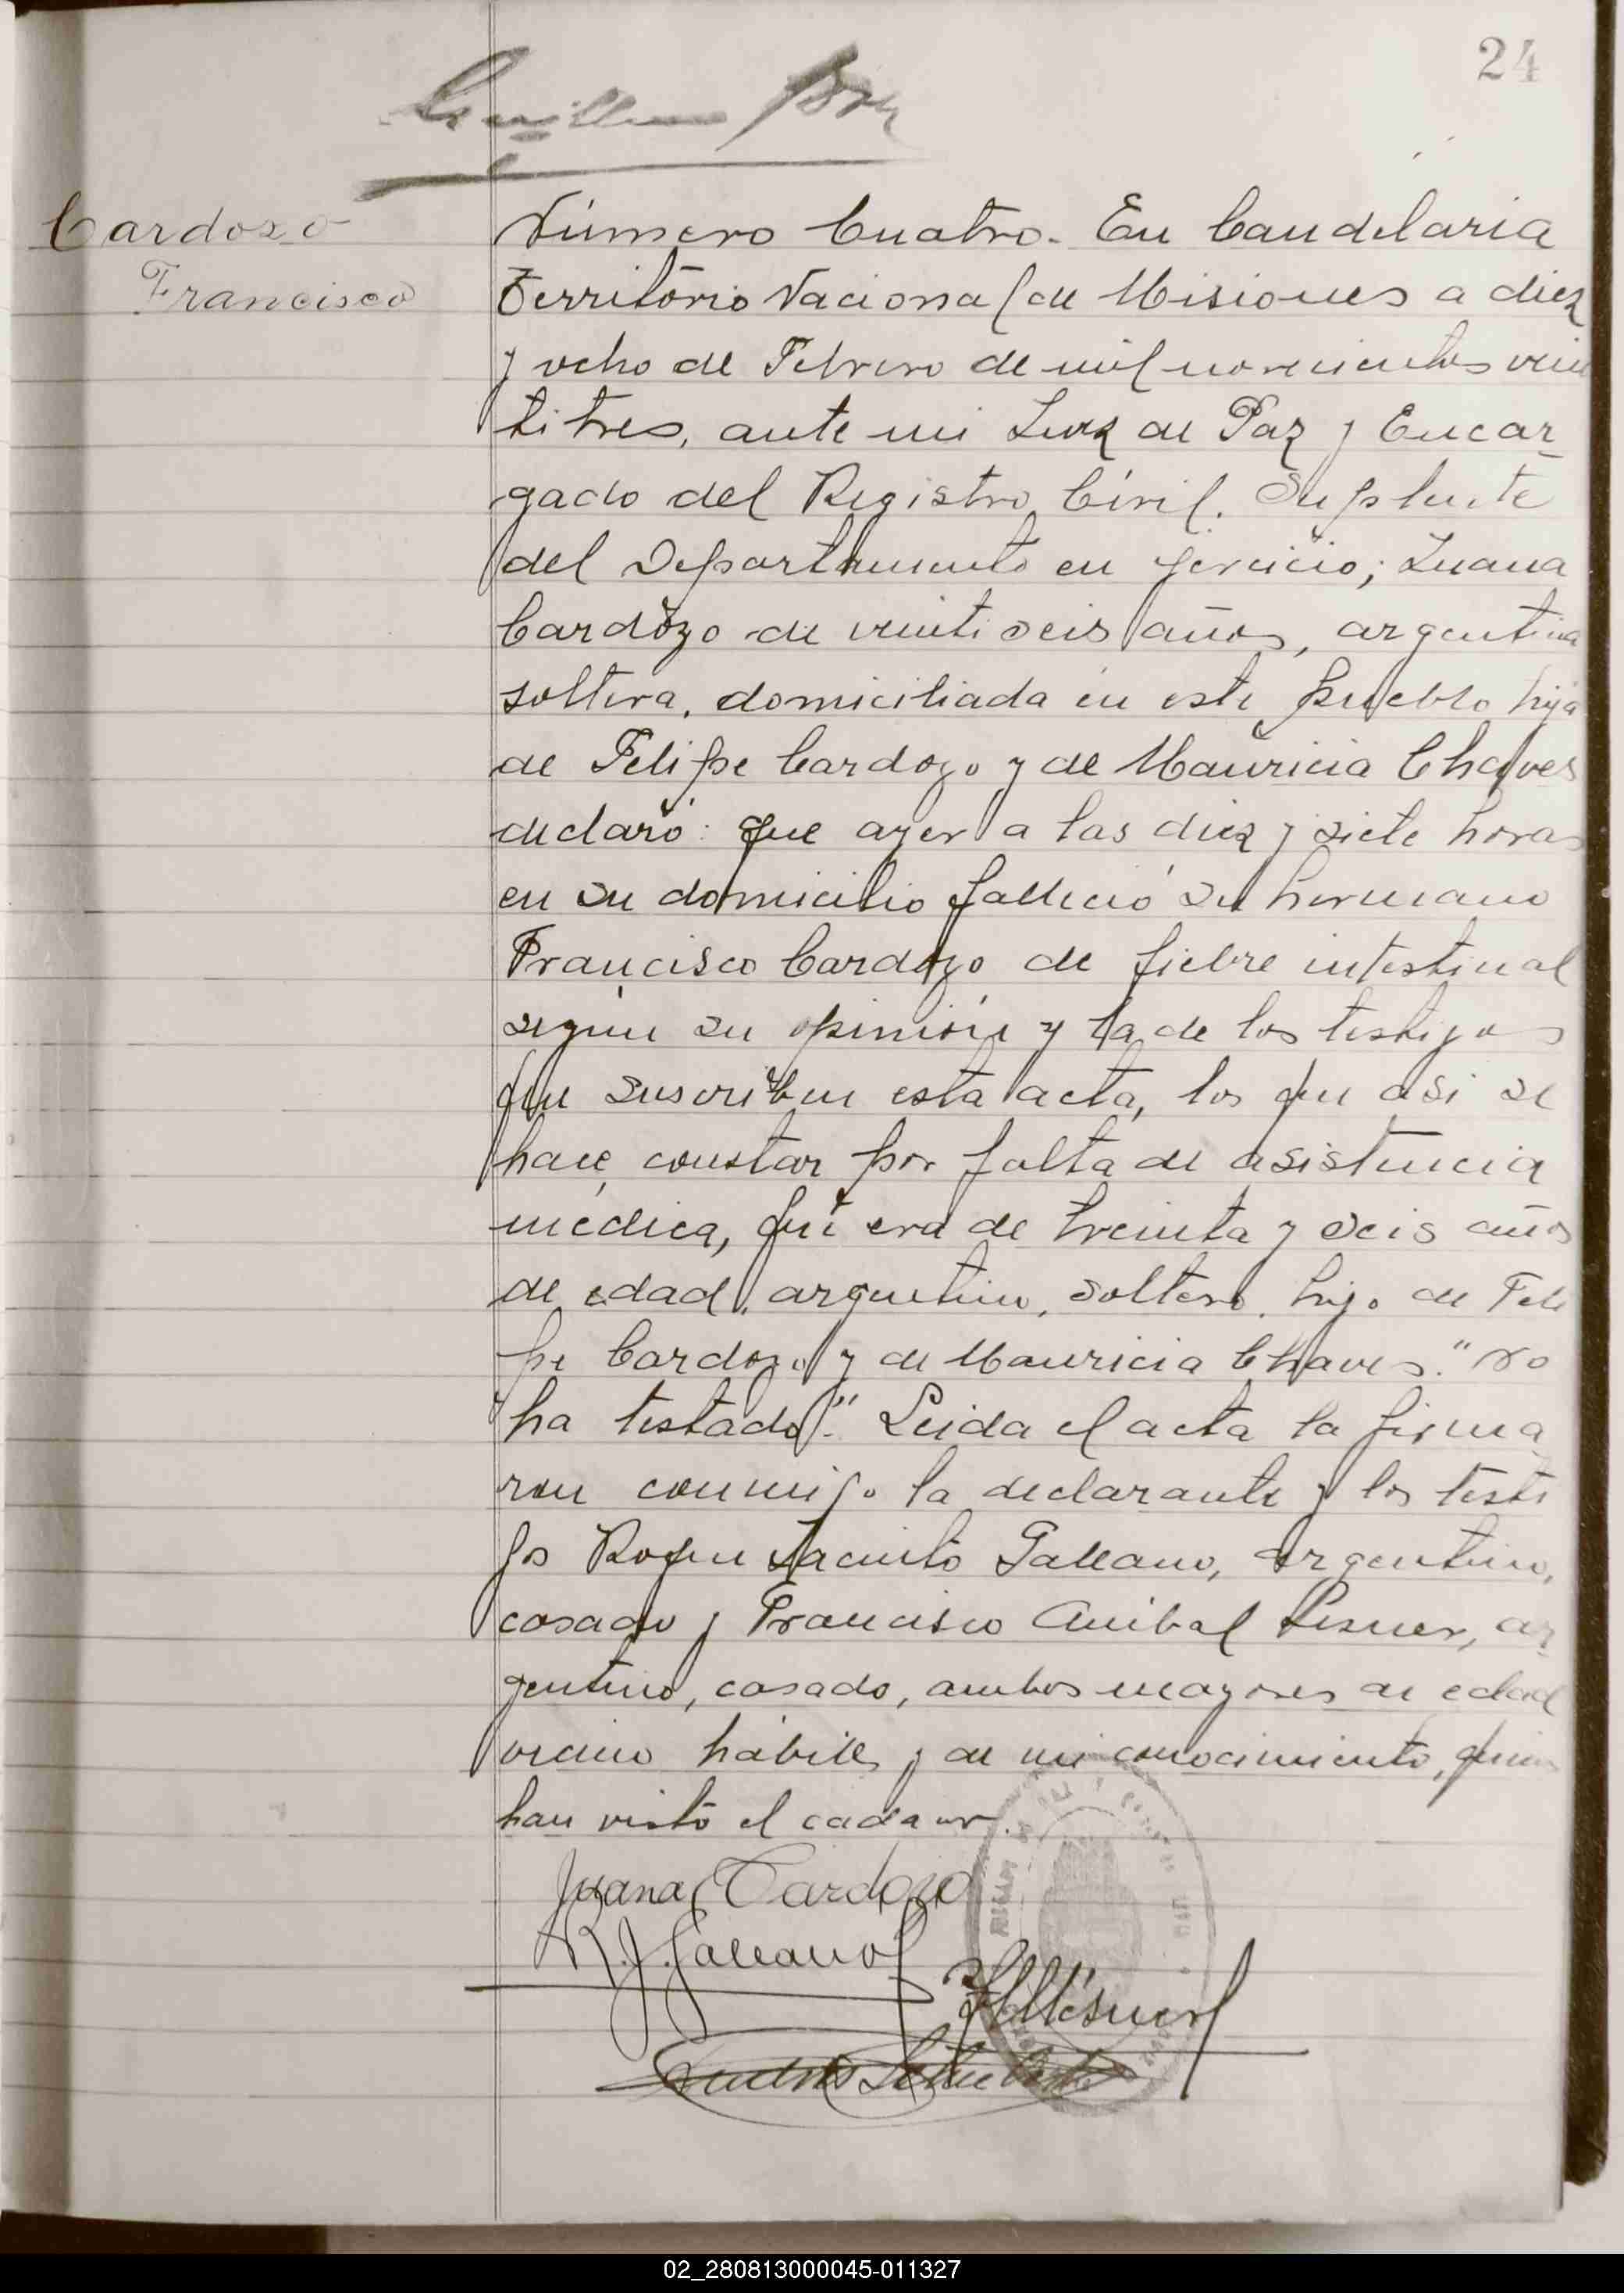 24
Cardozo
Francisco
Número Cuatro. En Candelaria
Territorio Nacional de Misiones a diez
y ocho de Febrero de mil novecientos vein
titres, ante mi Juez de Paz y Encar-
gado del Registro Civil. Suplente
del Departamento en ejercicio; Juana
Cardozo de veintiseis años, argentina
soltera, domiciliada en este pueblo hija
de Felipe Cardozo y de Mauricia Chaves
declaró: que ayer a las diez y siete horas
en su domicilio falleció su hermano
Francisco Cardozo de fiebre intestinal
según su opinión y la de los testigos
que suscriben esta acta, los que asi se
hace constar por falta de asistencia
médica, que era de treinta y seis años
de edad, argentino, soltero, hijo de Feli
pe Cardozo y de Mauricia Chaves. "No
ha testado". Leida el acta la firma-
ron conmigo la declarante y los testi
gos Roque Jacinto Galeano, argentino,
casado y Francisco Anibal Lesner, ar-
gentino, casado, ambos mayores de edad
vecino hábiles y de mi conocimiento, quienes
han visto el cadaver.
Juana Cardozo
R. J. Galeano